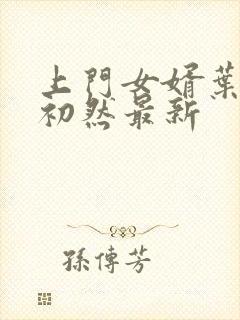 上門女婿葉
初然最新
孫傳芳